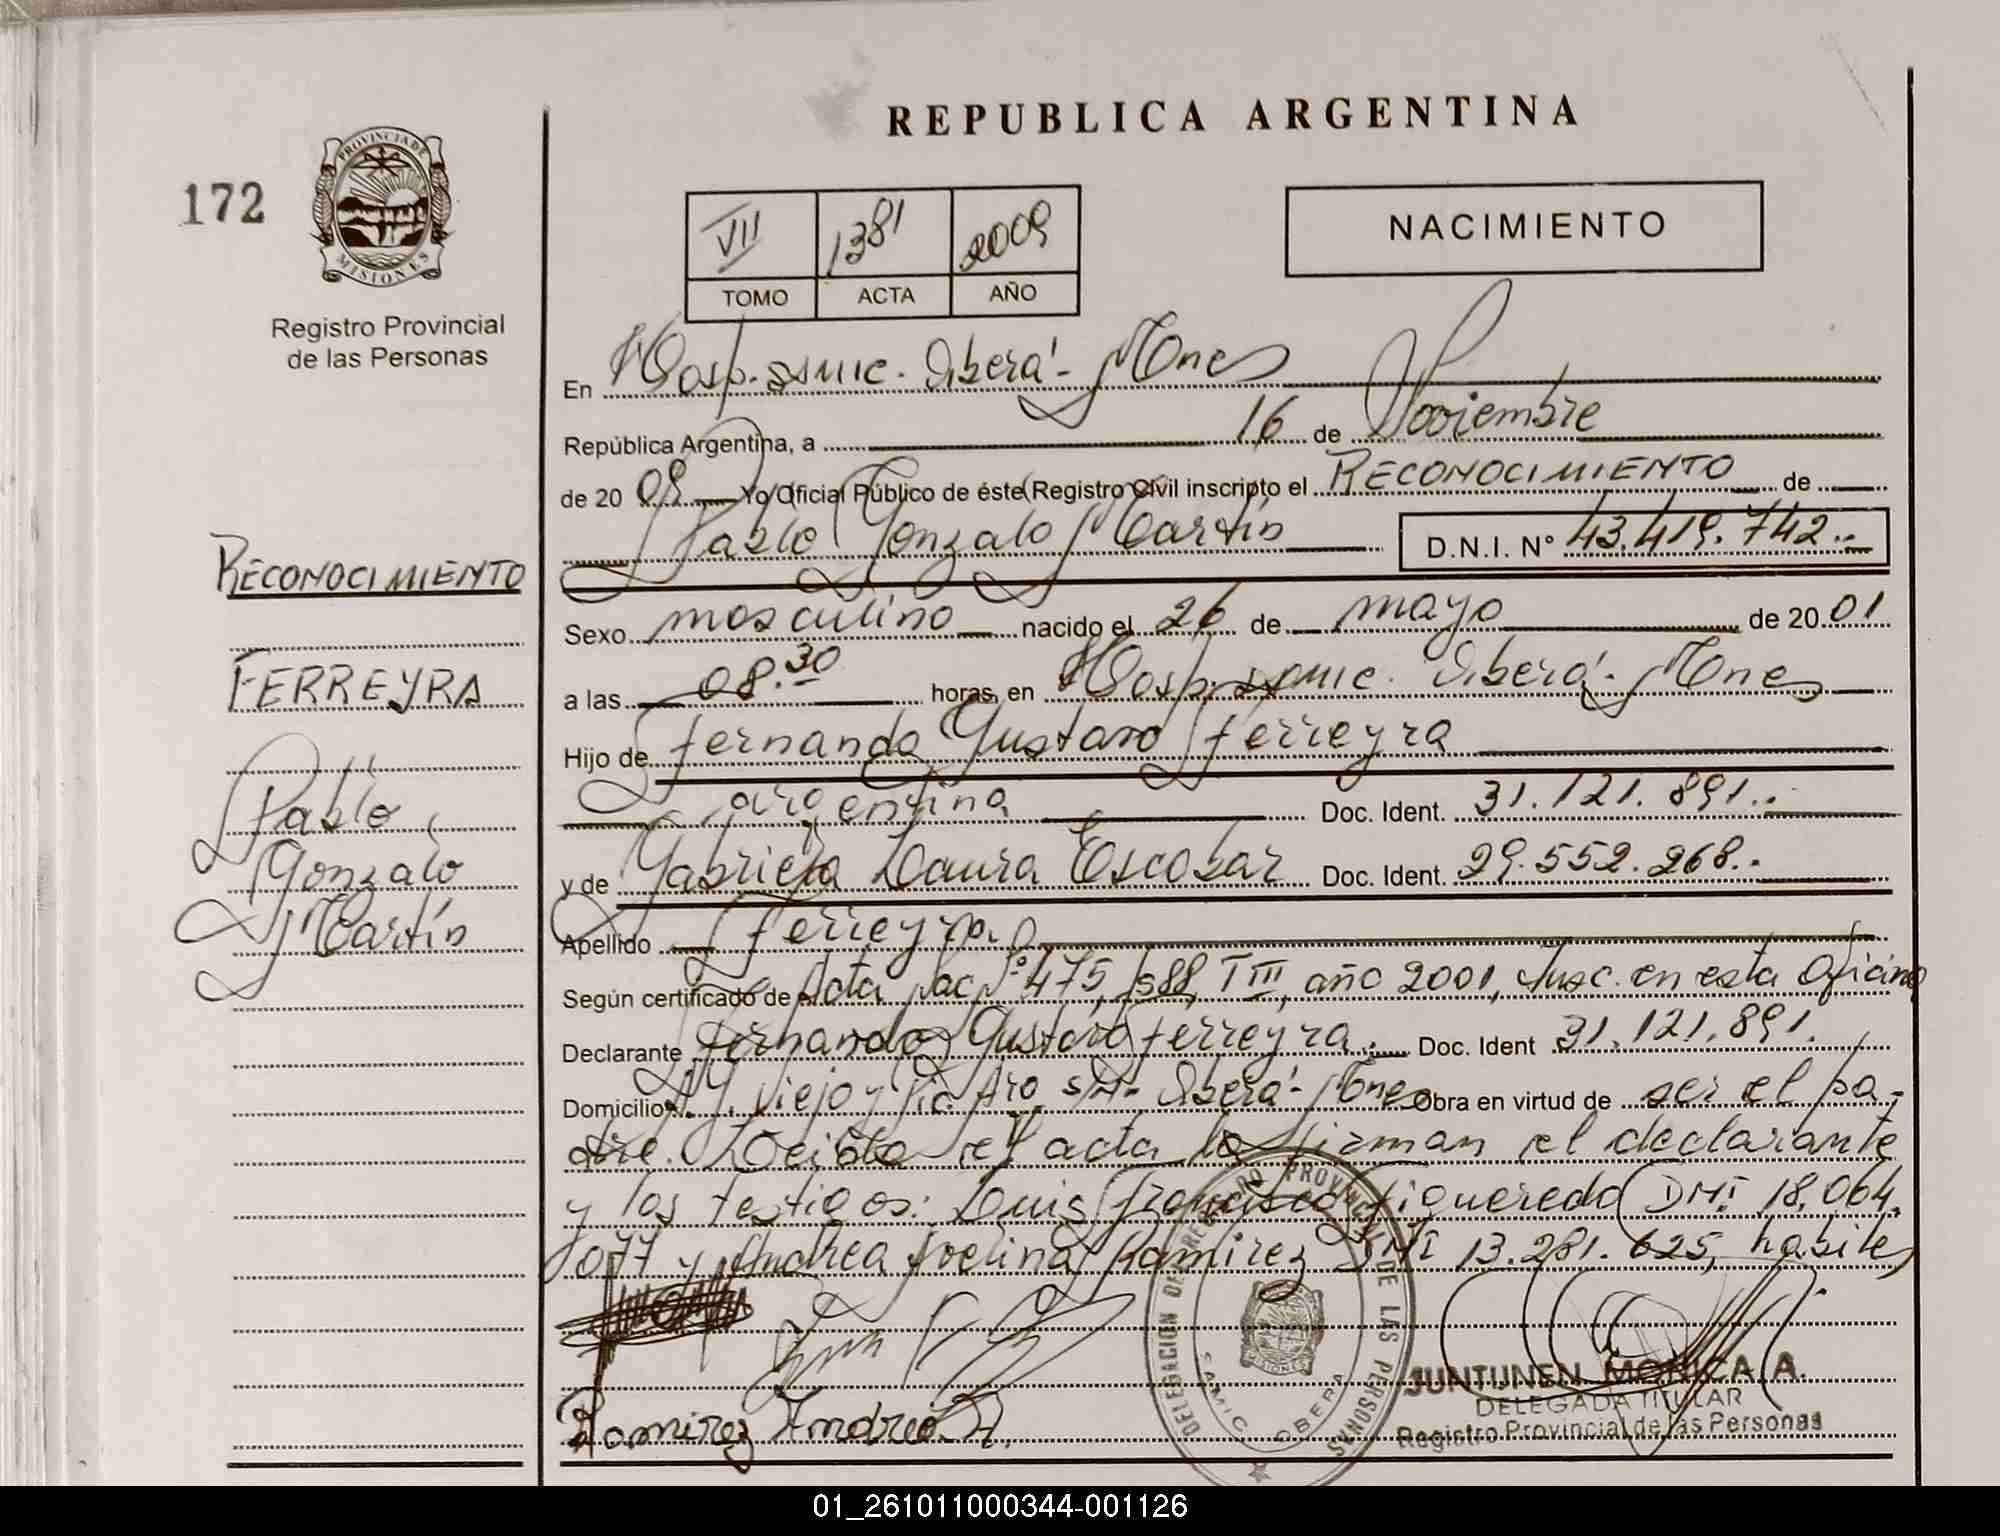 REPUBLICA ARGENTINA
172
PROVINCIA DE
MISIONES
Registro Provincial
de las Personas
VII 1381 2009
TOMO ACTA AÑO
NACIMIENTO
En Hosp. SAMIC. Oberá - Mnes
República Argentina, a 16 de Noviembre
de 20 09 Yo Oficial Público de éste Registro Civil inscripto el RECONOCIMIENTO de
Pablo Gonzalo Martín D.N.I. Nº 43.419.742.-
Sexo masculino nacido el 26 de mayo de 20 01
a las 08.30 horas, en Hosp. SAMIC. Oberá - Mnes
Hijo de Fernando Gustavo Ferreyra
argentina Doc. Ident. 31.121.891.-
y de Gabriela Laura Escobar Doc. Ident. 29.552.268.-
Apellido Ferreyra
Según certificado de Acta Nac Nº 475, Fº 88, T III, año 2001, Insc. en esta Oficina
Declarante Fernando Gustavo Ferreyra.- Doc. Ident 31.121.891.
Domicilio Viejo y Pic. s/n - Oberá - Mnes Obra en virtud de ser el pa-
dre. Leída el acta la firman el declarante
y los testigos: Luis Francisco Figueredo DNI 18.064.
077 y Andrea Ramirez DNI 13.281.625, habiles
Ramirez Andrea
RECONOCIMIENTO
FERREYRA
Pablo
Gonzalo
Martín
DELEGACION DEL REGISTRO PROVINCIAL DE LAS PERSONAS
SAMIC OBERA
MISIONES
JUNTUNEN MONICA A.
DELEGADA TITULAR
Registro Provincial de las Personas
01_261011000344-001126